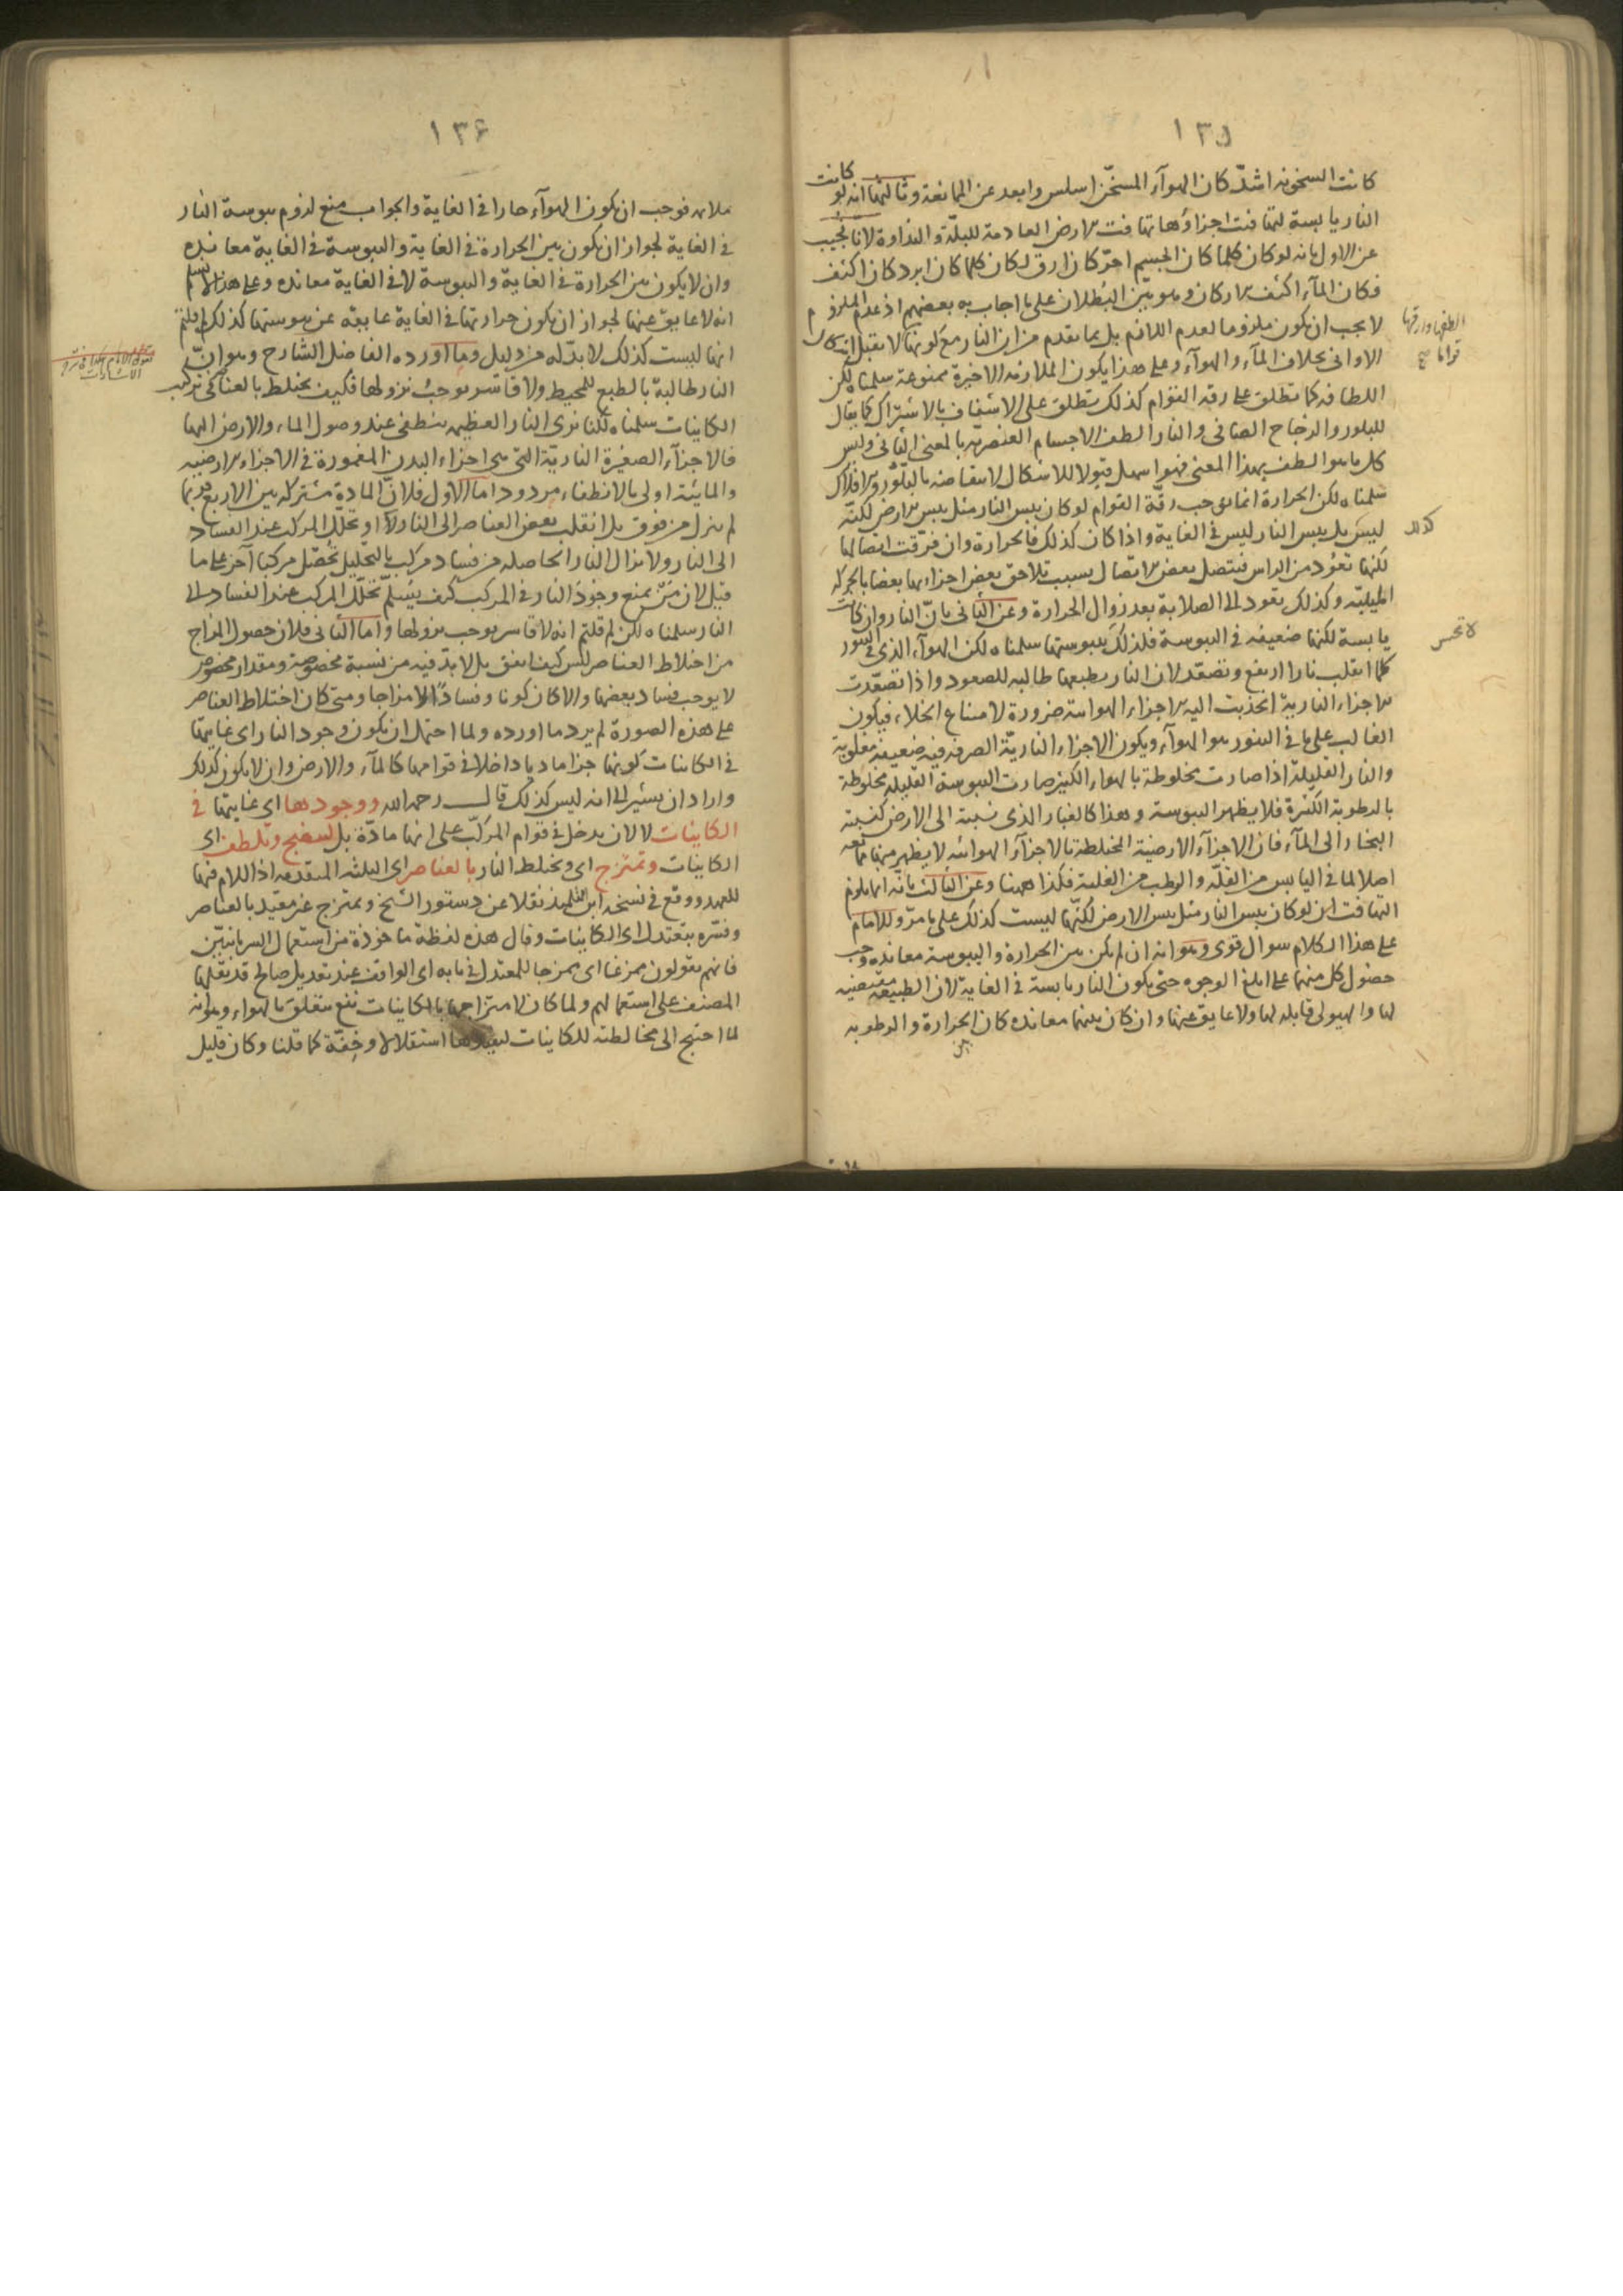 ١٣٥
كانت السخونة اشدّ كان الهوآء المسخّن اسلس وابعد عن الممانعة وثالثها انه لو كانت
النار يابسة لتهافت اجزاؤها تهافت الارض العادمة للبلّة والنداوة لانا نجيب
عن الاول بانه لو كان كلما كان الجسم احرّ كان ارق لكان كلما كان ابرد كان اكثف
فكان المآء اكثف الاركان وهو بيّن البطلان على ما اجاب به بعضهم اذ عدم الملزوم
لا يجب ان يكون ملزوما لعدم اللازم بل بما تقدم من ان النار مع كونها لا تقبل اشكال
الاوانى بخلاف المآء والهوآء وعلى هذا يكون الملازمة الاخيرة ممنوعة سلمناه لكن
اللطافة كما تطلق على رقة القوام كذلك تطلق على الاشفاف بالاشتراك كما يقال
للبلور والزجاج الصافى والنار الطف الاجسام العنصرية بالمعنى الثانى وليس
كل ما هو الطف بهذا المعنى فهو اسهل قبولا للاشكال لانتقاضه بالبلّور والافلاك
سلمناه لكن الحرارة انما توجب رقّة القوام لو كان يبس النار مثل يبس الارض لكنّه
ليس بل يبس النار ليس فى الغاية واذا كان كذلك فالحرارة وان فرّقت اتصالها
لكنها تعود من الراس فتتصل بعض الاتصال بسبب تلاحق بعض اجزاءها بعضا بالحركة
الميلية وكذلك تعود الى الصلابة بعد زوال الحرارة وعن الثانى بانّ النار وان كانت
يابسة لكنها ضعيفة فى اليبوسة فلذلك يبوستها سلمناه لكن الهوآء الذى فى التنور
كلما انقلب نارا ارتفع وتصعّد لان النار بطبعها طالبة للصعود واذا تصعّدت
الاجزاء النارية انجذبت اليه الاجزاء الهوائية ضرورة لامتناع الخلاء فيكون
الغالب على ما فى التنور هو الهوآء ويكون الاجزاء الناريّة الصرفة فيه ضعيفة مغلوبة
والنار القليلة اذا صارت مخلوطة بالهواء الكثير صارت اليبوسة القليلة مخلوطة
بالرطوبة الكثيرة فلا يظهر اليبوسة وهذا كالغبار الذى نسبته الى الارض كنسبة
البخار الى المآء فان الاجزآء الارضية المختلطة بالاجزآء الهوائية لا يظهر منها ممانعة
اصلا لما فى اليابس من القلّة والرطب من الغلبة فكذا ههنا وعن الثالث بانّه انما يلزم
التهافت ان لو كان يبس النار مثل يبس الارض لكنّها ليست كذلك على ما مرّ وللامام
على هذا الكلام سوال قوى وهو انه ان لم يكن بين الحرارة واليبوسة معاندة وجب
حصول كل منهما على ابلغ الوجوه حتى يكون النار يابسة فى الغاية لان الطبيعة مقتضية
لها والهيولى قابلة لها ولا عايق عنها وان كان بينهما معاندة كان الحرارة والرطوبة
الطفها وارقها
قواما صح
كذلك
لا تحس
١٣٦
ملائمة فوجب ان يكون الهوآء حارا فى الغاية والجواب منع لزوم يبوسة النار
فى الغاية لجواز ان يكون بين الحرارة فى الغاية واليبوسة فى الغاية معاندة
وان لا يكون بين الحرارة فى الغاية واليبوسة لا فى الغاية معاندة وعلى هذا لا نسلم
انه لا عايق عنها لجواز ان يكون حرارتها فى الغاية عايقة عن يبوستها كذلك
انها ليست كذلك لا بدّ له من دليل وما اورده الفاضل الشارح وهو انّ
النار طالبة بالطبع للمحيط ولا قاسر يوجب نزولها فكيف يختلط بالعناصر
الكاينات سلمناه لكنا نرى النار العظيمة تنطفى عند وصول الماء والارض اليها
فالاجزآء الصغيرة الناريّة التى هى اجزاء البدن المغمورة فى الاجزاء الارضية
والمائية اولى بالانطفاء مردود اما الاول فلانّ المادة مشتركة بين الاربع فربما
لم ينزل من فوق بل انقلب بعض العناصر الى النار اولا او تحلّل المركب عند الفساد
الى النار ولا تزال النار الحاصلة من فساد مركب بالتحليل تحصّل مركبا آخر على ما
قيل لان من يمنع وجود النار فى المركب كيف يسلّم تحلّل المركب عند الفساد الى
النار سلمناه لكن لم قلتم انه لا قاسر يوجب نزولها واما الثانى فلان حصول المزاج
من اختلاط العناصر ليس كيف اتفق بل لا بدّ فيه من نسبة مخصوصة ومقدار مخصوص
لا يوجب فساد بعضها والا كان كونا وفسادا لا مزاجا ومتى كان اختلاط العناصر
على هذه الصورة لم يرد ما اورده ولما احتمل ان يكون وجود النار اى غايتها
فى الكاينات كونها جزا ماديا داخلا فى قوامها كالمآء والارض وان لا يكون كذلك
واراد ان يشير الى انه ليس كذلك قال رحمه الله ووجودها اى غايتها فى
الكاينات لا لان يدخل فى قوام المركّب على انها مادّة بل لتنضج وتلطف اى
الكاينات وتمتزج اى وتختلط النار بالعناصر اى الثلثة المتقدمة اذ اللام فيها
للعهد ووقع فى نسخة ابن التلميذ نقلا عن دستور الشيخ وتمتزج غير مقيد بالعناصر
وفسّره بتعتدل اى الكاينات وقال هذه لفظة ماخوذة من استعمال السريانيين
فانهم يقولون ممزغا اى ممزجا للمعتدل فى بابه اى الواقف عند تعديل صالح قد نقلها
المصنف على استعمالهم ولما كان لامتزاجها بالكاينات نفع متعلق بالهواء وهو انه
لما احتيج الى مخالطته للكاينات ليفيدها استقلالا وخفّة كما قلنا وكان قليل